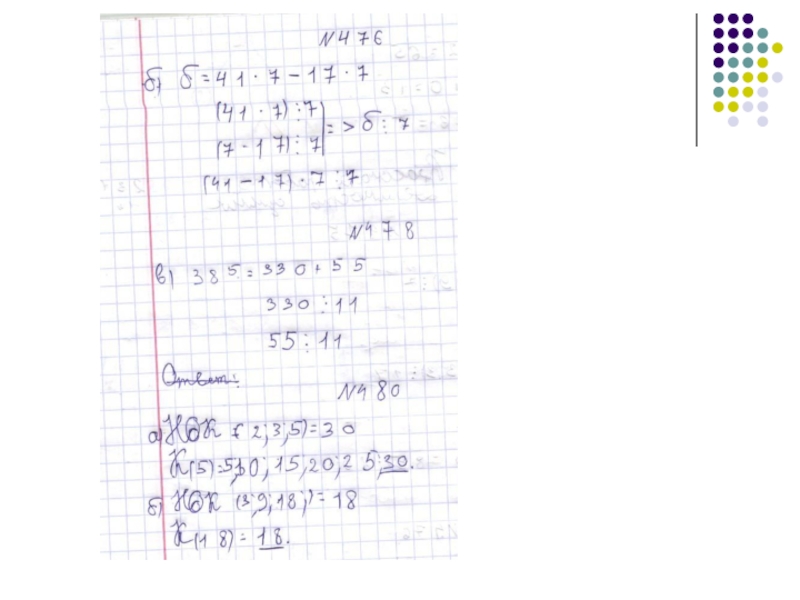 №476
б) б = 41 · 7 - 17 · 7
(41 · 7) ⋮ 7
=> б ⋮ 7
(7 · 17) ⋮ 7
(41 - 17) · 7 ⋮ 7
№478
в) 385 = 330 + 55
330 ⋮ 11
55 ⋮ 11
Ответ:
№480
а) НОК (2; 3; 5) = 30
К(5) = 5; 10; 15; 20; 25; 30.
б) НОК (3; 9; 18;) = 18
К(18) = 18.